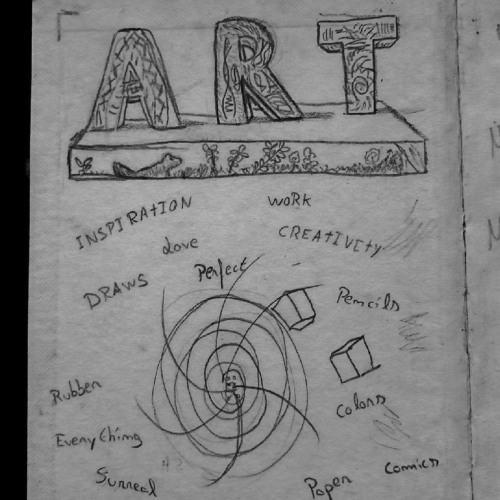 ART
INSPIRATION
WORK
Love
CREATIVITY
Perfect
DRAWS
Pencils
Rubber
Colors
Everything
Surreal
Paper
Comics